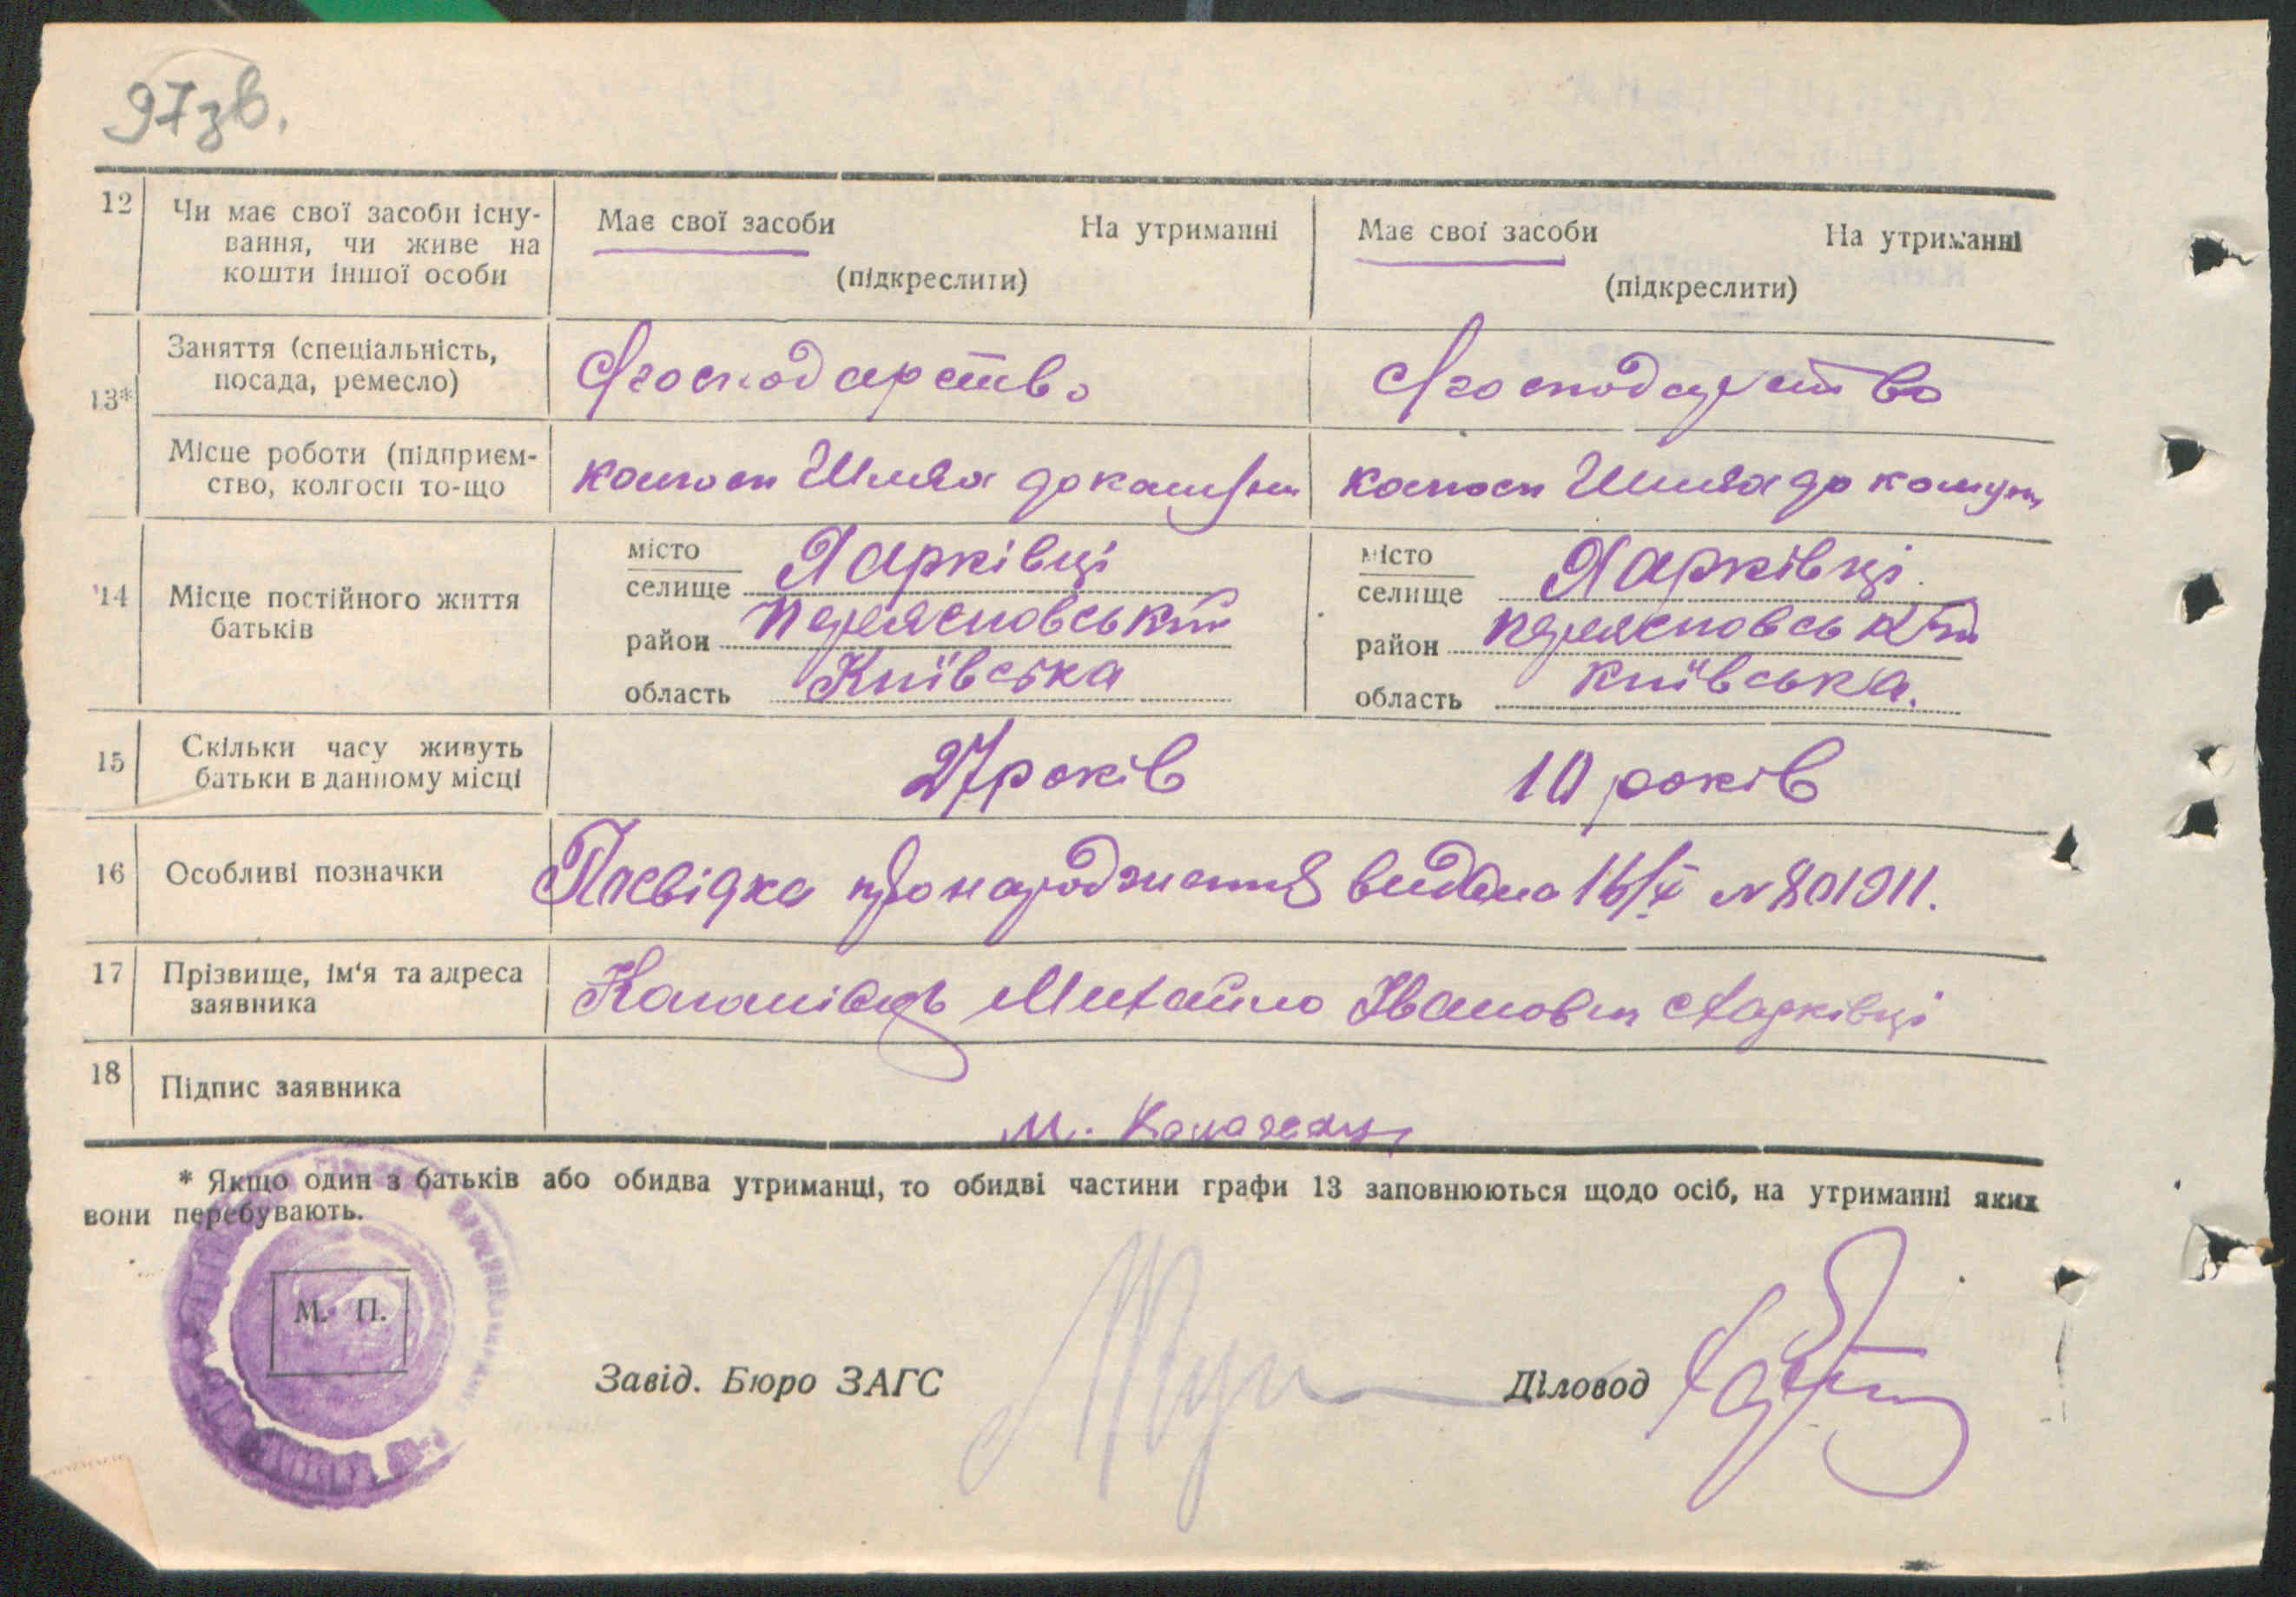 97зв.
12 Чи має свої засоби існу-
вання, чи живе на
кошти іншої особи
Має свої засоби На утриманні
(підкреслити)
Має свої засоби На утриманні
(підкреслити)
13*
Заняття (спеціальність,
посада, ремесло)
господарство
господарство
Місце роботи (підприєм-
ство, колгосп то-що
Шлях до
Шлях до
14 Місце постійного життя
батьків
місто
селище Харківці
район
область Київська
місто
селище Харківці
район
область Київська.
15 Скільки часу живуть
батьки в данному місці
27 років 10 років
16 Особливі позначки
Посвідка про народження видана 16/X № 801911.
17 Прізвище, ім'я та адреса
заявника
Михайло Іванович Харківці
18 Підпис заявника
М.
* Якщо один з батьків або обидва утриманці, то обидві частини графи 13 заповнюються щодо осіб, на утриманні яких
вони перебувають.
М. П.
Завід. Бюро ЗАГС
Діловод